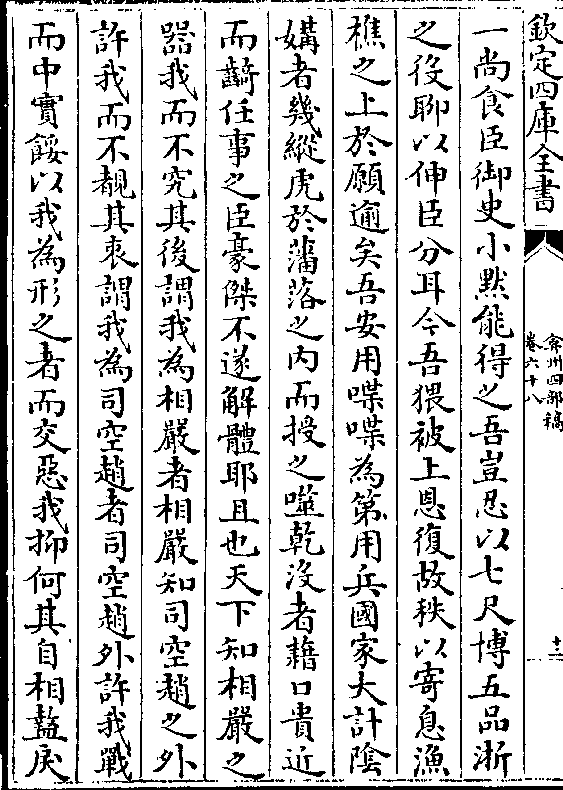 欽定四庫全書
弇州四部稿
卷六十八
十二
一尚食臣御史小黙能得之吾豈忍以七尺博五品浙
之役聊以伸臣分耳今吾猥被上恩復故秩以寄息漁
樵之上於願逾矣吾安用喋喋為第用兵國家大計陰
媾者幾縱虎於藩落之内而授之噬乾没者藉口貴近
而齮任事之臣豪傑不遂解體耶且也天下知相嚴之
器我而不究其後謂我為相嚴者相嚴知司空趙之外
許我而不覩其衷謂我為司空趙者司空趙外許我戰
而中實餒以我為形之者而交惡我抑何其自相盭戾